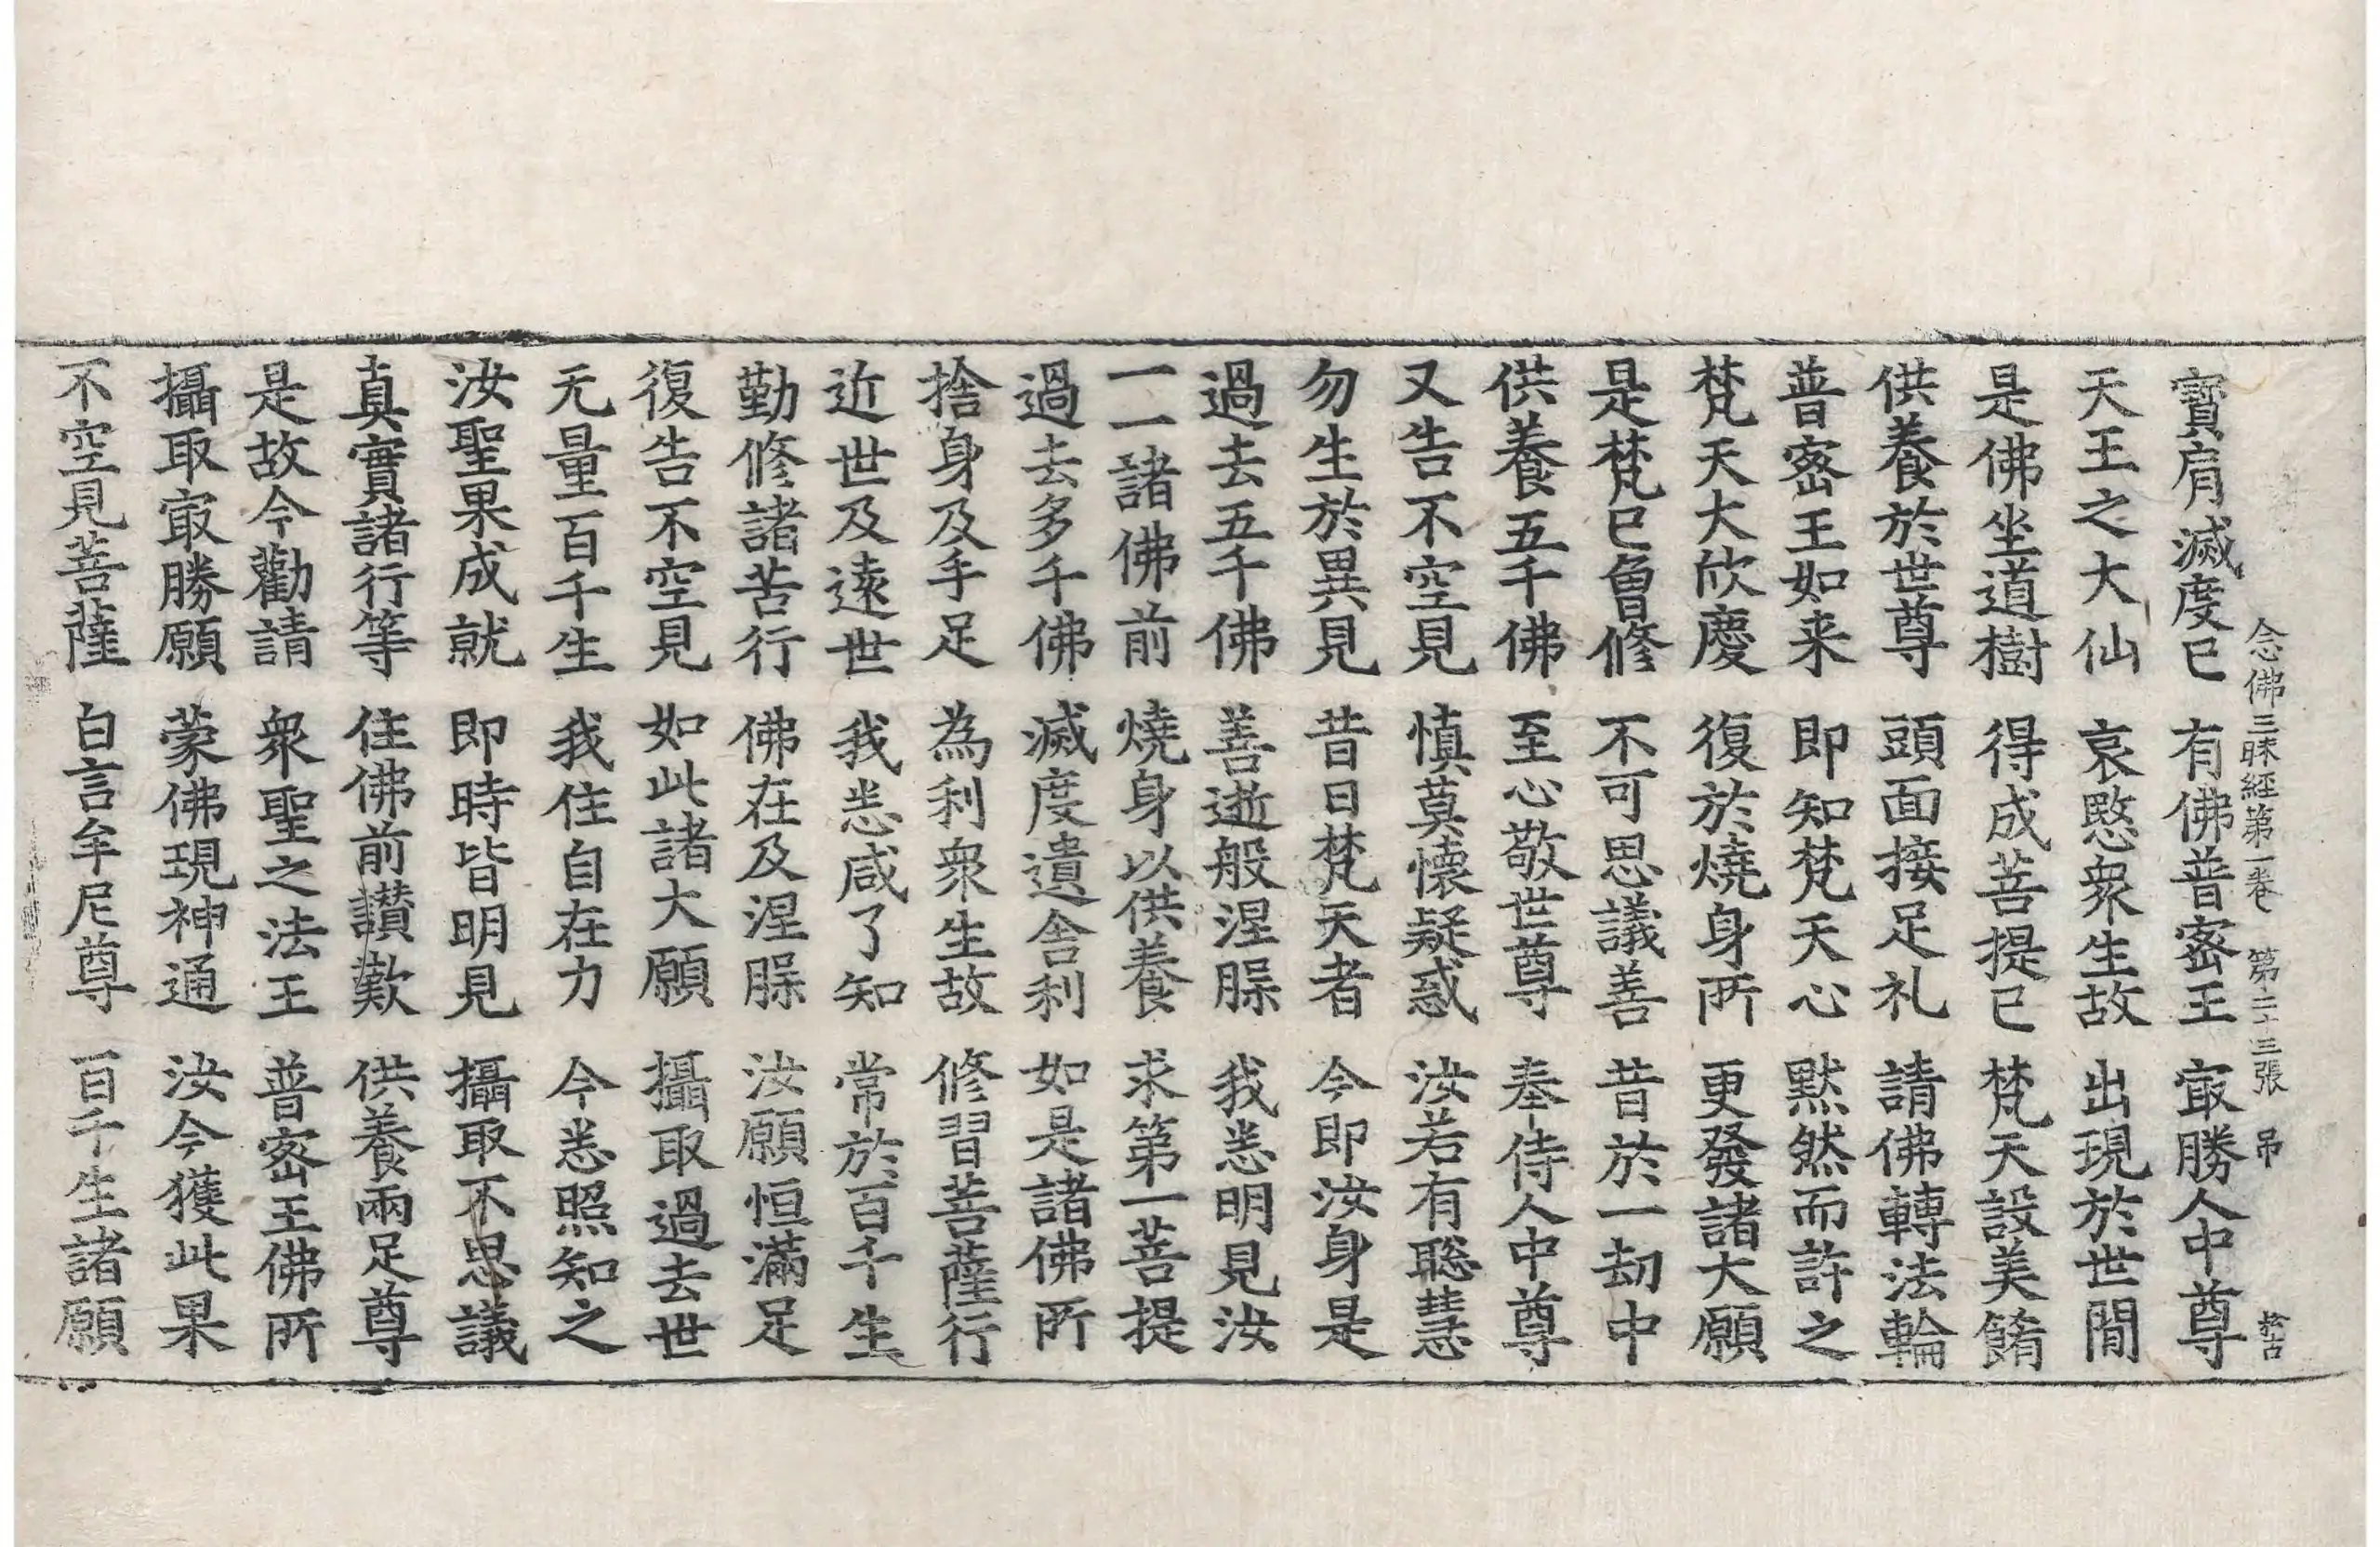 念佛三昧經第一卷 第二十三張 弔
寳肩滅度已 有佛普密王 㝡勝人中尊
天王之大仙 哀愍衆生故 出現於世間
是佛坐道樹 得成菩提已 梵天設美餚
供養於世尊 頭面接足礼 請佛轉法輪
普密王如来 即知梵天心 黙然而許之
梵天大欣慶 復於燒身所 更發諸大願
是梵已曾修 不可思議善 昔於一劫中
供養五千佛 至心敬世尊 奉侍人中尊
又告不空見 慎莫懷疑惑 汝若有聡慧
勿生於異見 昔日梵天者 今即汝身是
過去五千佛 善逝般涅槃 我悉明見汝
一一諸佛前 燒身以供養 求第一菩提
過去多千佛 滅度遺舎利 如是諸佛所
捨身及手足 為利衆生故 修習菩薩行
近世及遠世 我悉咸了知 常於百千生
勤修諸苦行 佛在及涅槃 汝願恒滿足
復告不空見 如此諸大願 攝取過去世
无量百千生 我住自在力 今悉照知之
汝聖果成就 即時皆明見 攝取不思議
真實諸行等 住佛前讃歎 供養兩足尊
是故今勸請 衆聖之法王 普密王佛所
攝取㝡勝願 蒙佛現神通 汝今獲此果
不空見菩薩 白言牟尼尊 百千生諸願